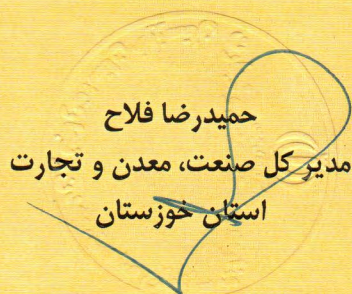 حمیدرضا فلاح
مدیر کل صنعت، معدن و تجارت
استان خوزستان